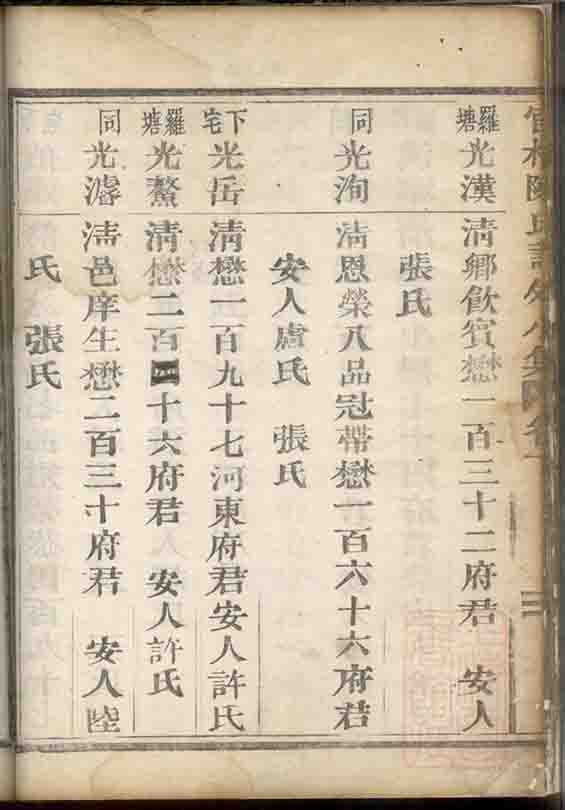 羅塘 光漢 清鄉飲賓懋一百三十二府君 安人
張氏
同 光洵 清恩榮八品冠帶懋一百六十六府君
安人盧氏 張氏
下宅 光岳 清懋一百九十七河東府君安人許氏
羅塘 光鰲 清懋二百三十六府君 安人許氏
同 光濬 清邑庠生懋二百三十府君 安人陸
氏 張氏